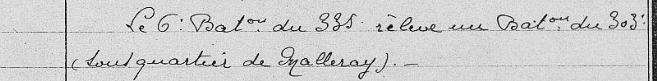 Le 6: Bat^on du 335 relève un Bat^on du 303:
(sous quartier de Malleray). —